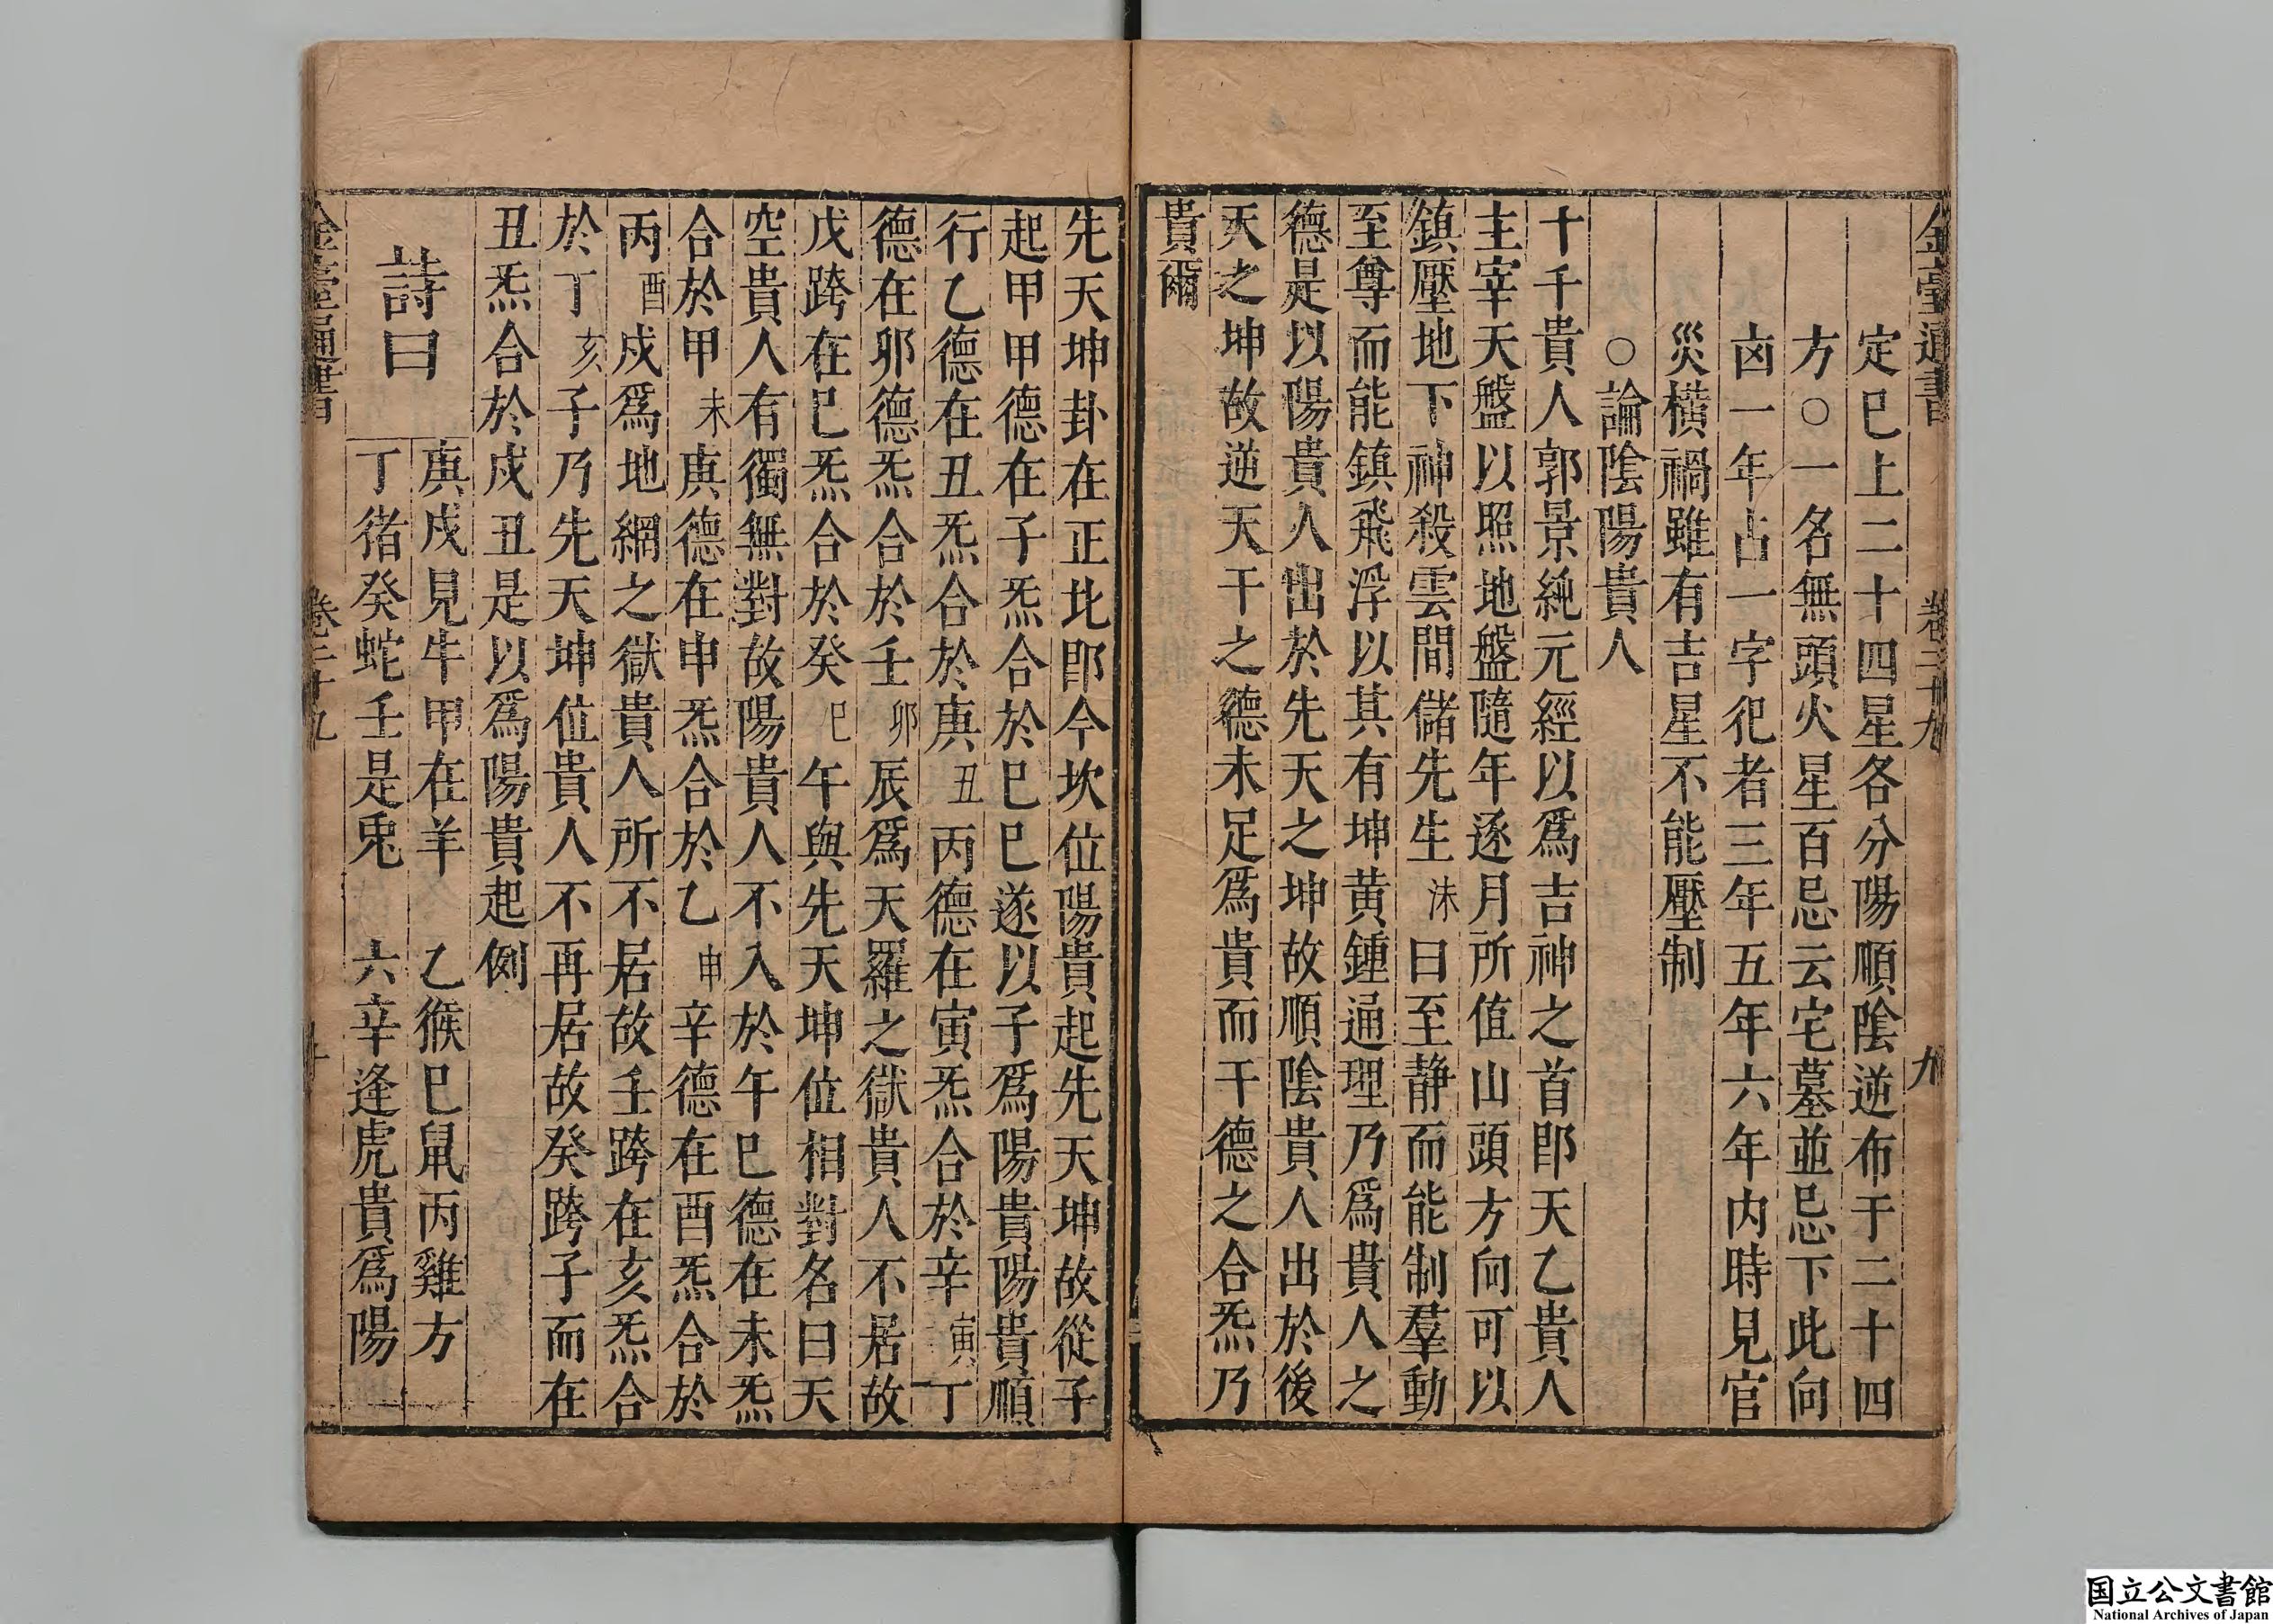 金臺通書 卷三十九 九
定巳上二十四星各分陽順陰逆布于二十四
方○一名無頭火星百忌云宅墓並忌下此向
凶一年占一字犯者三年五年六年内時見官
災橫禍雖有吉星不能壓制
○論陰陽貴人
十千貴人郭景純元經以爲吉神之首即天乙貴人
主宰天盤以照地盤隨年逐月所值山頭方向可以
鎮壓地下神殺雲間儲先生泳曰至静而能制羣動
至尊而能鎮飛浮以其有坤黄鍾通理乃爲貴人之
德是以陽貴人出於先天之坤故順陰貴人出於後
天之坤故逆天干之德未足爲貴而干德之合炁乃
貴爾
先天坤卦在正北即今坎位陽貴起先天坤故從子
起甲甲德在子炁合於巳巳遂以子爲陽貴陽貴順
行乙德在丑炁合於庚丑丙德在寅炁合於辛寅丁
德在卯德炁合於壬卯辰爲天羅之獄貴人不居故
戊跨在巳炁合於癸巳午與先天坤位相對名曰天
空貴人有獨無對故陽貴人不入於午巳德在未炁
合於甲未庚德在申炁合於乙申辛德在酉炁合於
丙酉戌爲地網之獄貴人所不居故壬跨在亥炁合
於丁亥子乃先天坤位貴人不再居故癸跨子而在
丑炁合於戌丑是以爲陽貴起例
詩曰
庚戌見牛甲在羊 乙猴巳鼠丙雞方
丁猪癸蛇壬是兎 六辛逢虎貴爲陽
金臺通書 卷三十九 十
国立公文書館
National Archives of Japan